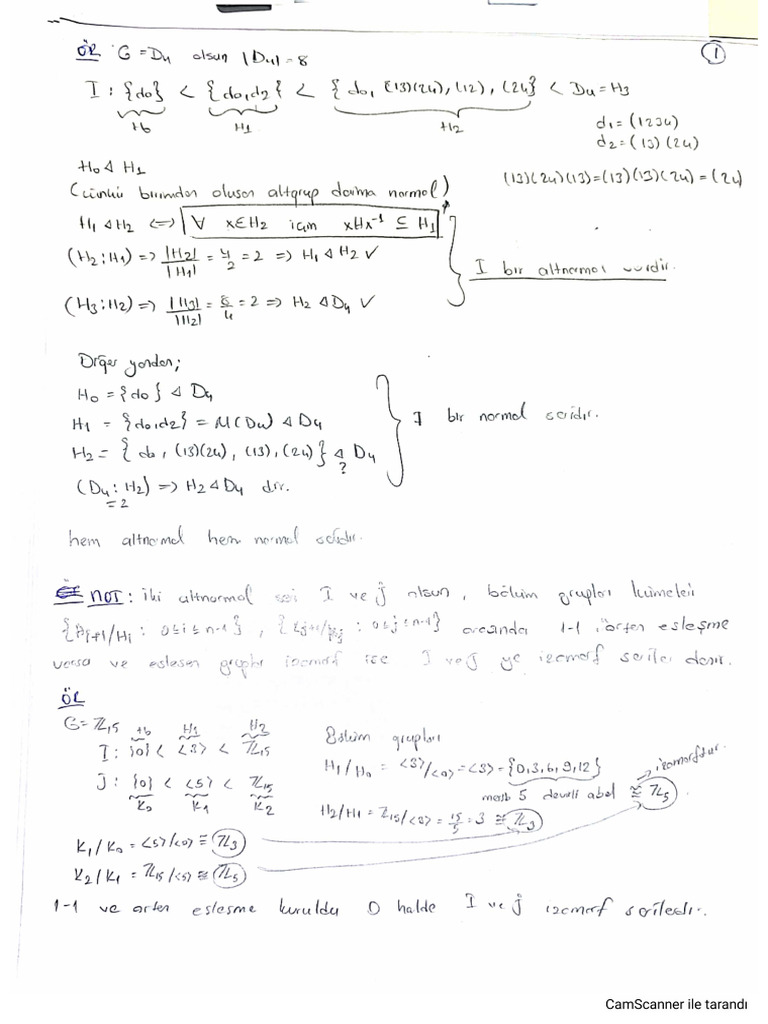 ÖR G = D4 olsun |D4| = 8
①
I : {d0} < {d0, d2} < {d0, (13)(24), (12), (24)} < D4 = H3
H0 H1 H2
d1 = (1234)
d2 = (13)(24)
H0 ⊲ H1
(13)(24)(13) = (13)(13)(24) = (24)
(Çünkü birimden oluşan altgrup daima normal)
H1 ⊲ H2 <=> ∀ x∈H2 için xHx⁻¹ ⊆ H1
(H2 : H1) => |H2|/|H1| = 4/2 = 2 => H1 ⊲ H2 ✓
I bir altnormal seridir.
(H3 : H2) => |H3|/|H2| = 8/4 = 2 => H2 ⊲ D4 ✓
Diğer yönden;
H0 = {d0} ⊲ D4
H1 = {d0, d2} = M(D4) ⊲ D4
I bir normal seridir.
H2 = {d0, (13)(24), (13), (24)} ⊲ D4
?
(D4 : H2) => H2 ⊲ D4 dir.
= 2
hem altnormal hem normal seridir.
NOT : iki altnormal seri I ve J olsun, bölüm grupları kümeleri
{Hi+1/Hi : 0≤i≤n-1}, {Kj+1/Kj : 0≤j≤n-1} arasında 1-1 örten eşleşme
varsa ve eşleşen gruplar izomorf ise I ve J ye izomorf seriler denir.
ÖR
G = ℤ15
H0 H1 H2
I : {0} < <3> < ℤ15
Bölüm grupları
H1/H0 = <3>/<0> = <3> = {0,3,6,9,12}
izomorftur.
J : {0} < <5> < ℤ15
K0 K1 K2
mert. 5 devirli abel ≅ ℤ5
H2/H1 = ℤ15/<3> = 15/5 = 3 ≅ ℤ3
K1/K0 = <5>/<0> ≅ ℤ3
K2/K1 = ℤ15/<5> ≅ ℤ5
1-1 ve örten eşleşme kuruldu O halde I ve J izomorf serilerdir.
CamScanner ile tarandı